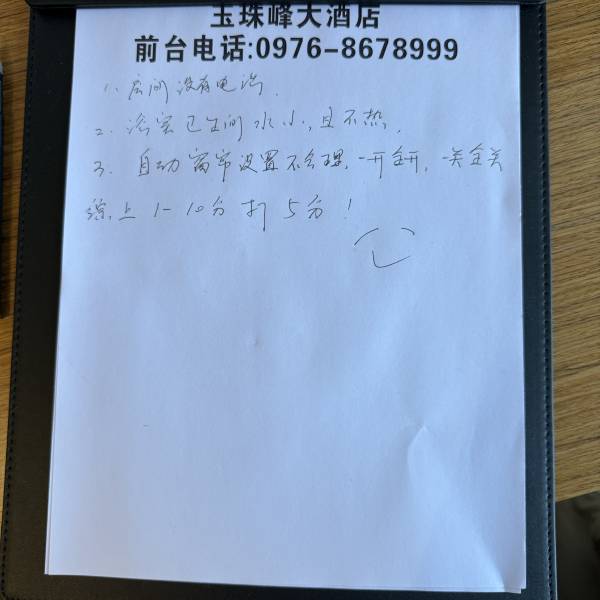 玉珠峰大酒店
前台电话:0976-8678999
1、房间没有电话.
2、浴室卫生间水小,且不热.
3、自动窗帘设置不合理,一开全开,一关全关
综上1-10分打5分!